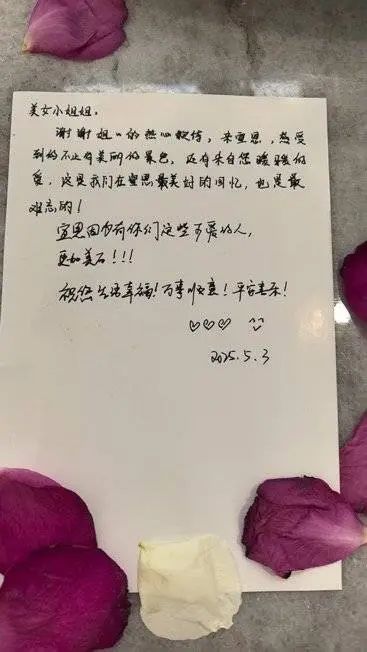 美女小姐姐,
谢谢姐姐的热心款待,来宣恩,感受
到的不止有美丽的景色,还有来自您暖暖的
爱,这是我们在宣恩最美好的回忆,也是最
难忘的!
宣恩因为有你们这些可爱的人,
更加美了!!!
祝您生活幸福!万事顺意!平安喜乐!
♡♡♡ ^^
2025.5.3